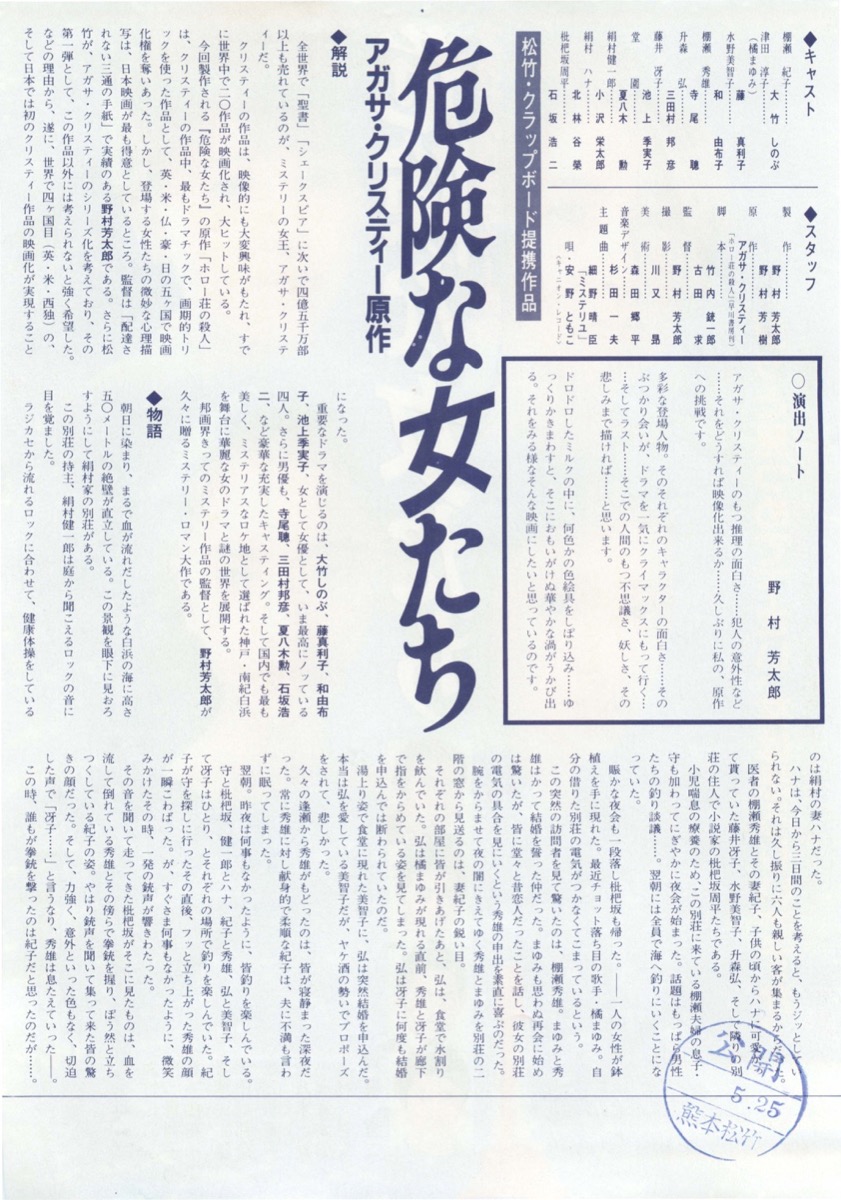 ◆キャスト
棚瀬 紀子……大竹 しのぶ
津田 淳子
(橘まゆみ)……藤 真利子
水野美智子……和 由布子
棚瀬 秀雄……寺尾 聰
升森 弘……三田村 邦彦
藤井 冴子……池上 季実子
堂園……夏八木 勲
絹村健一郎……小沢 栄太郎
絹村 ハナ……北林 谷榮
枇杷坂周平……石坂 浩二
◆スタッフ
製作……野村 芳太郎
野村 芳樹
原作……アガサ・クリスティー
「ホロー荘の殺人」(早川書房刊)
脚本……竹内 銃一郎
古田 求
監督……野村 芳太郎
撮影……川又 昻
美術……森田 郷平
音楽デザイン……杉田 一夫
主題曲……細野 晴臣
「ミステリユ」
唄・安野 ともこ
(キャニオン・レコード)
松竹・クラップボード提携作品
危険な女たち
アガサ・クリスティー原作
○演出ノート
野村 芳太郎
アガサ・クリスティーのもつ推理の面白さ……犯人の意外性など
……それをどうすれば映像化出来るか……久しぶりに私の、原作
への挑戦です。
多彩な登場人物。そのそれぞれのキャラクターの面白さ……その
ぶつかり合いが、ドラマを一気にクライマックスにもって行く…
…そしてラスト……そこでの人間のもつ不思議さ、妖しさ、その
悲しみまで描ければ……と思います。
ドロドロしたミルクの中に、何色かの色絵具をしぼり込み……ゆ
っくりかきまわすと、そこにおもいがけぬ華やかな渦がうかび出
る。それをみる様なそんな映画にしたいと思っているのです。
◆解説
全世界で「聖書」「シェークスピア」に次いで四億五千万部
以上も売れているのが、ミステリーの女王、アガサ・クリステ
ィーだ。
クリスティーの作品は、映像的にも大変興味がもたれ、すで
に世界中で二〇作品が映画化され、大ヒットしている。
今回製作される『危険な女たち』の原作「ホロー荘の殺人」
は、クリスティーの作品中、最もドラマチックで、画期的トリ
ックを使った作品として、英・米・仏・豪・日の五ヶ国で映画
化権を奪いあった。しかし、登場する女性たちの微妙な心理描
写は、日本映画が最も得意としているところ。監督は「配達さ
れない三通の手紙」で実績のある野村芳太郎である。さらに松
竹が、アガサ・クリスティーのシリーズ化を考えており、その
第一弾として、この作品以外には考えられないと強く希望した。
などの理由から、遂に、世界で四ヶ国目(英・米・西独)の、
そして日本では初のクリスティー作品の映画化が実現すること
になった。
重要なドラマを演じるのは、大竹しのぶ、藤真利子、和由布
子、池上季実子、女として女優として、いま最高にノッている
四人。さらに男優も、寺尾聰、三田村邦彦、夏八木勲、石坂浩
二、など豪華な充実したキャスティング。そして国内でも最も
美しく、ミステリアスなロケ地として選ばれた神戸・南紀白浜
を舞台に華麗な女のドラマと謎の世界を展開する。
邦画界きってのミステリー作品の監督として、野村芳太郎が
久々に贈るミステリー・ロマン大作である。
◆物語
朝日に染まり、まるで血が流れだしたような白浜の海に高さ
五〇メートルの絶壁が直立している。この景観を眼下に見おろ
すようにして絹村家の別荘がある。
この別荘の持主、絹村健一郎は庭から聞こえるロックの音に
目を覚ました。
ラジカセから流れるロックに合わせて、健康体操をしている
のは絹村の妻ハナだった。
ハナは、今日から三日間のことを考えると、もうジッとしてい
られない。それは久し振りに六人も親しい客が集まるからだった。
医者の棚瀬秀雄とその妻紀子、子供の頃からハナに可愛が
て貰っていた藤井冴子、水野美智子、升森弘、そして隣りの別
荘の住人で小説家の枇杷坂周平たちである。
小児喘息の療養のため、この別荘に来ている棚瀬夫婦の息子・
守も加わってにぎやかに夜会が始まった。話題はもっぱら男性
たちの釣り談議……。翌朝には全員で海へ釣りにいくことにな
っていた。
賑かな夜会も一段落し枇杷坂も帰った。――一人の女性が鉢
植えを手に現れた。最近チョット落ち目の歌手・橘まゆみ。自
分の借りた別荘の電気がつかなくてこまっているという。
この突然の訪問者を見て驚いたのは、棚瀬秀雄。まゆみと秀
雄はかつて結婚を誓った仲だった。まゆみも思わぬ再会に始め
は驚いたが、皆に堂々と昔恋人だったことを話し、彼女の別荘
の電気の具合を見にいくという秀雄の申出を素直に喜ぶのだった。
腕をからませて夜の闇にきえてゆく秀雄とまゆみを別荘の二
階の窓から見送るのは、妻紀子の鋭い目。
それぞれの部屋に皆が引きあげたあと、弘は、食堂で水割り
を飲んでいた。弘は橘まゆみが現れる直前、秀雄と冴子が廊下
で指をからめている姿を見てしまった。弘は冴子に何度も結婚
を申込んでは断わられていたのだ。
湯上り姿で食堂に現れた美智子に、弘は突然結婚を申込んだ。
本当は弘を愛している美智子だが、ヤケ酒の勢いでプロポーズ
をされて、悲しかった。
久々の逢瀬から秀雄がもどったのは、皆が寝静まった深夜だ
った。常に秀雄に対し献身的で柔順な紀子は、夫に不満も言わ
ずに眠ってしまった。
翌朝。昨夜は何事もなかったように、皆釣りを楽しんでいる。
守と枇杷坂、健一郎とハナ、紀子と秀雄、弘と美智子、そし
て冴子はひとり、とそれぞれの場所で釣りを楽しんでいた。紀
子が守を探しに行ったその直後、フッと立ち上がった秀雄の顔
が一瞬こわばった。が、すぐさま何事もなかったように、微笑
みかけたその時、一発の銃声が響きわたった。
その音を聞いて走ってきた枇杷坂がそこに見たものは、血を
流して倒れている秀雄とその傍らで拳銃を握り、ぼう然と立ち
つくしている紀子の姿。やはり銃声を聞いて集って来た皆の驚
きの顔だった。そして、力強く、意外といった色もなく、切迫
した声で「冴子……」と言うなり、秀雄は息たえていった――。
この時、誰もが拳銃を撃ったのは紀子だと思ったのだが……。
公開
5.25
熊本松竹